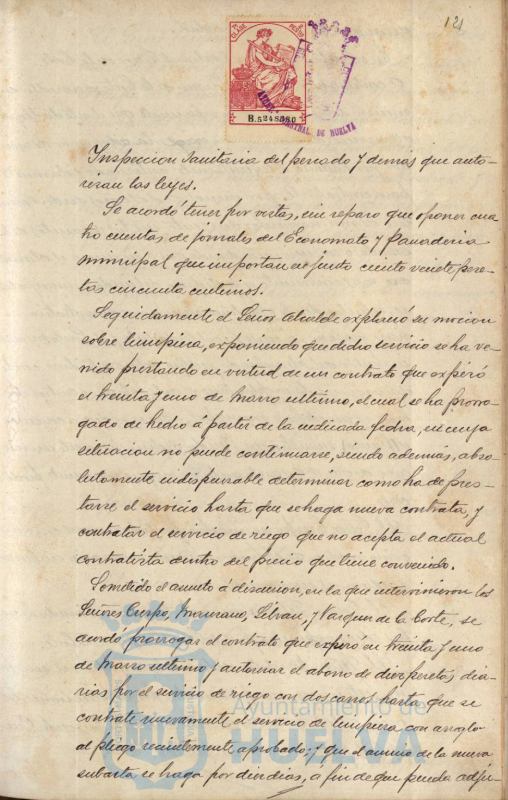 121
CLASE PESETAS
B.5248080
HUELVA
Inspeccion Sanitaria del pescado y demás que auto-
rizan las leyes.
Se acordó tener por vistas, sin reparo que oponer cua-
tro cuentas de jornales del Economato y Panaderia
municipal que importan en junto ciento veinte pese-
tas cincuenta centimos.
Seguidamente el Señor Alcalde explanó su mocion
sobre limpieza, exponiendo que dicho servicio se ha ve-
nido prestando en virtud de un contrato que expiró
el treinta y uno de Marzo ultimo, el cual se ha prorro-
gado de hecho á partir de la indicada fecha, en cuya
situacion no puede continuarse, siendo además, abso-
lutamente indispensable determinar como ha de pres-
tarse el servicio hasta que se haga nueva contrata, y
contratar el servicio de riego que no acepta el actual
contratista dentro del precio que tiene convenido.
Sometido el asunto á discusion, en la que intervinieron los
Señores Crespo, y Vazquez de la Corte, se
acordó prorrogar el contrato que expiró en treinta y uno
de Marzo ultimo y autorizar el abono de diez pesetas dia-
rias por el servicio de riego con dos carros hasta que se
contrate nuevamente el servicio de limpieza con arreglo
al pliego recientemente aprobado; y que el anuncio de la nueva
subasta se haga por diez dias, á fin de que pueda adju-
Ayuntamiento de
HUELVA